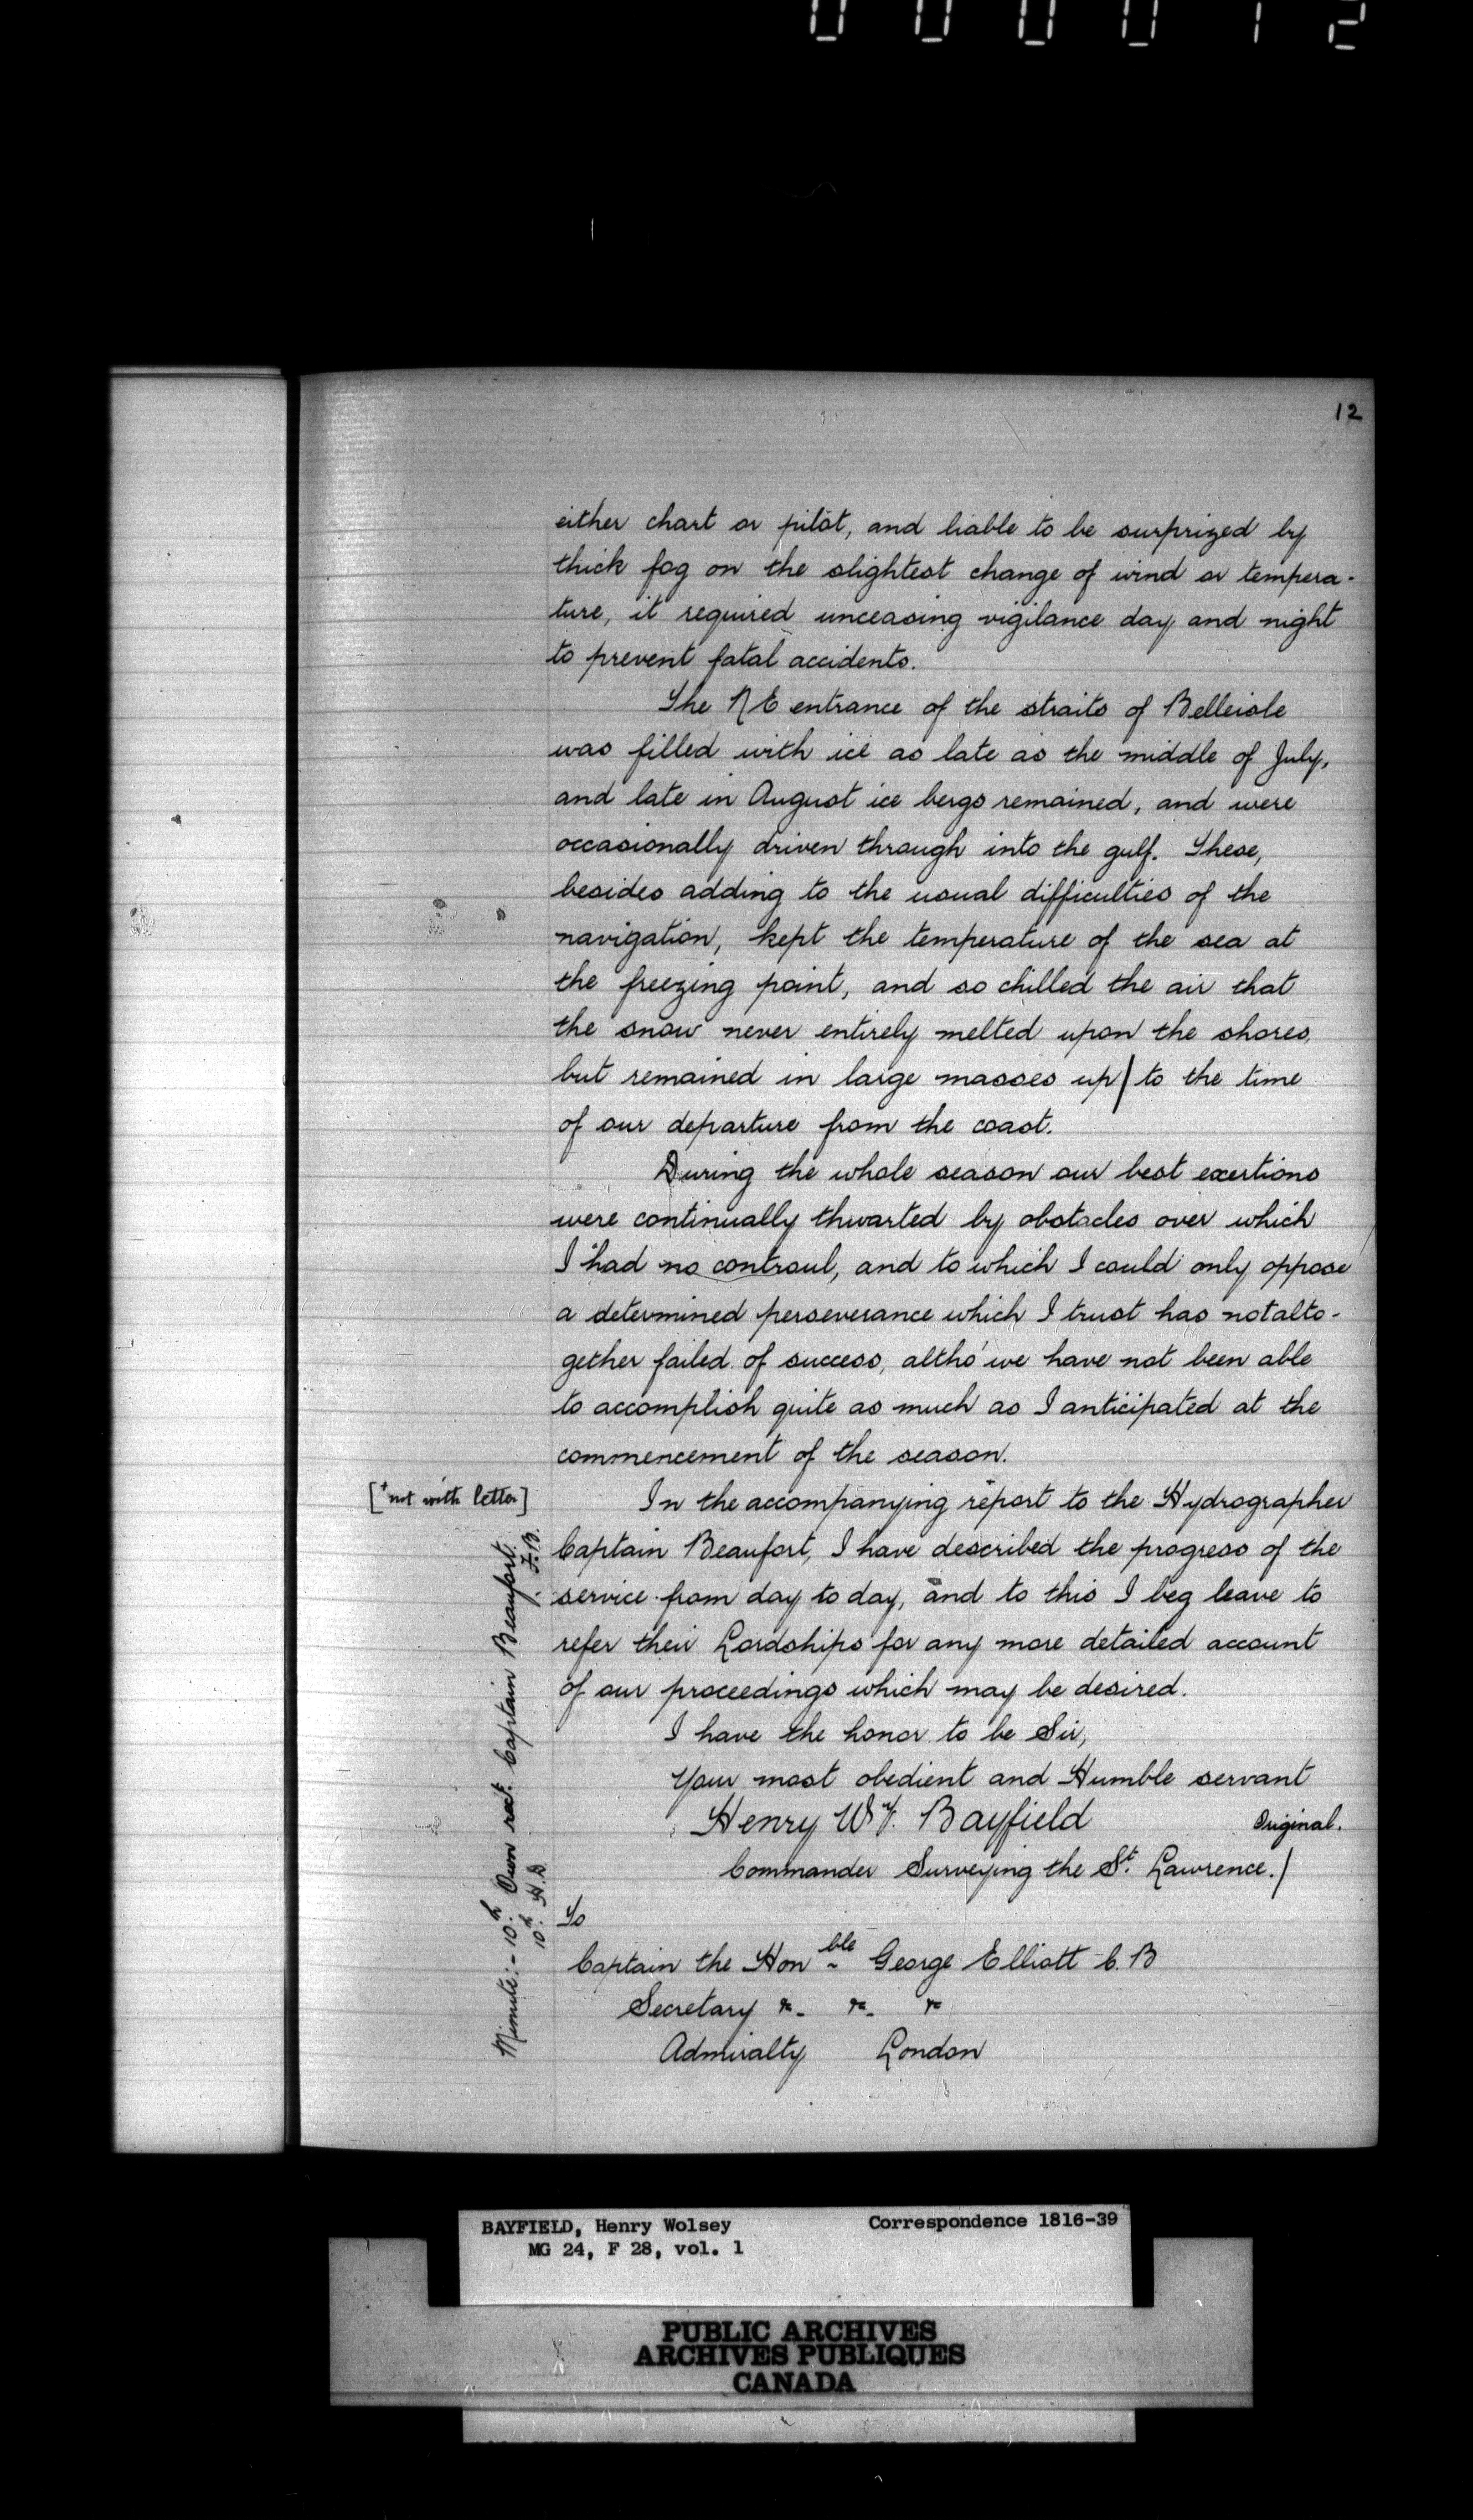 000012
12
either chart or pilot, and liable to be surprized by
thick fog on the slightest change of wind or tempera-
ture, it required unceasing vigilance day and night
to prevent fatal accidents.
The NE entrance of the straits of Belleisle
was filled with ice as late as the middle of July,
and late in August ice bergs remained, and were
occasionally driven through into the gulf. These,
besides adding to the usual difficulties of the
navigation, kept the temperature of the sea at
the freezing point, and so chilled the air that
the snow never entirely melted upon the shores,
but remained in large masses up/ to the time
of our departure from the coast.
During the whole season our best exertions
were continually thwarted by obstacles over which
I had no controul, and to which I could only oppose
a determined perseverance which I trust has not alto-
gether failed of success, altho' we have not been able
to accomplish quite as much as I anticipated at the
commencement of the season.
[+not with letter]
In the accompanying report to the Hydrographer
Captain Beaufort, I have described the progress of the
service from day to day, and to this I beg leave to
refer their Lordships for any more detailed account
of our proceedings which may be desired.
I have the honor to be Sir,
Your most obedient and Humble servant
Henry W. Bayfield
Original.
Commander Surveying the St. Lawrence./
To
Captain the Honble George Elliott C.B
Secretary &c. &c. &c
Admiralty London
Minute:- 10th Own rect. Captain Beaufort.
10th. H.D F.B.
BAYFIELD, Henry Wolsey Correspondence 1816-39
MG 24, F 28, vol. 1
PUBLIC ARCHIVES
ARCHIVES PUBLIQUES
CANADA